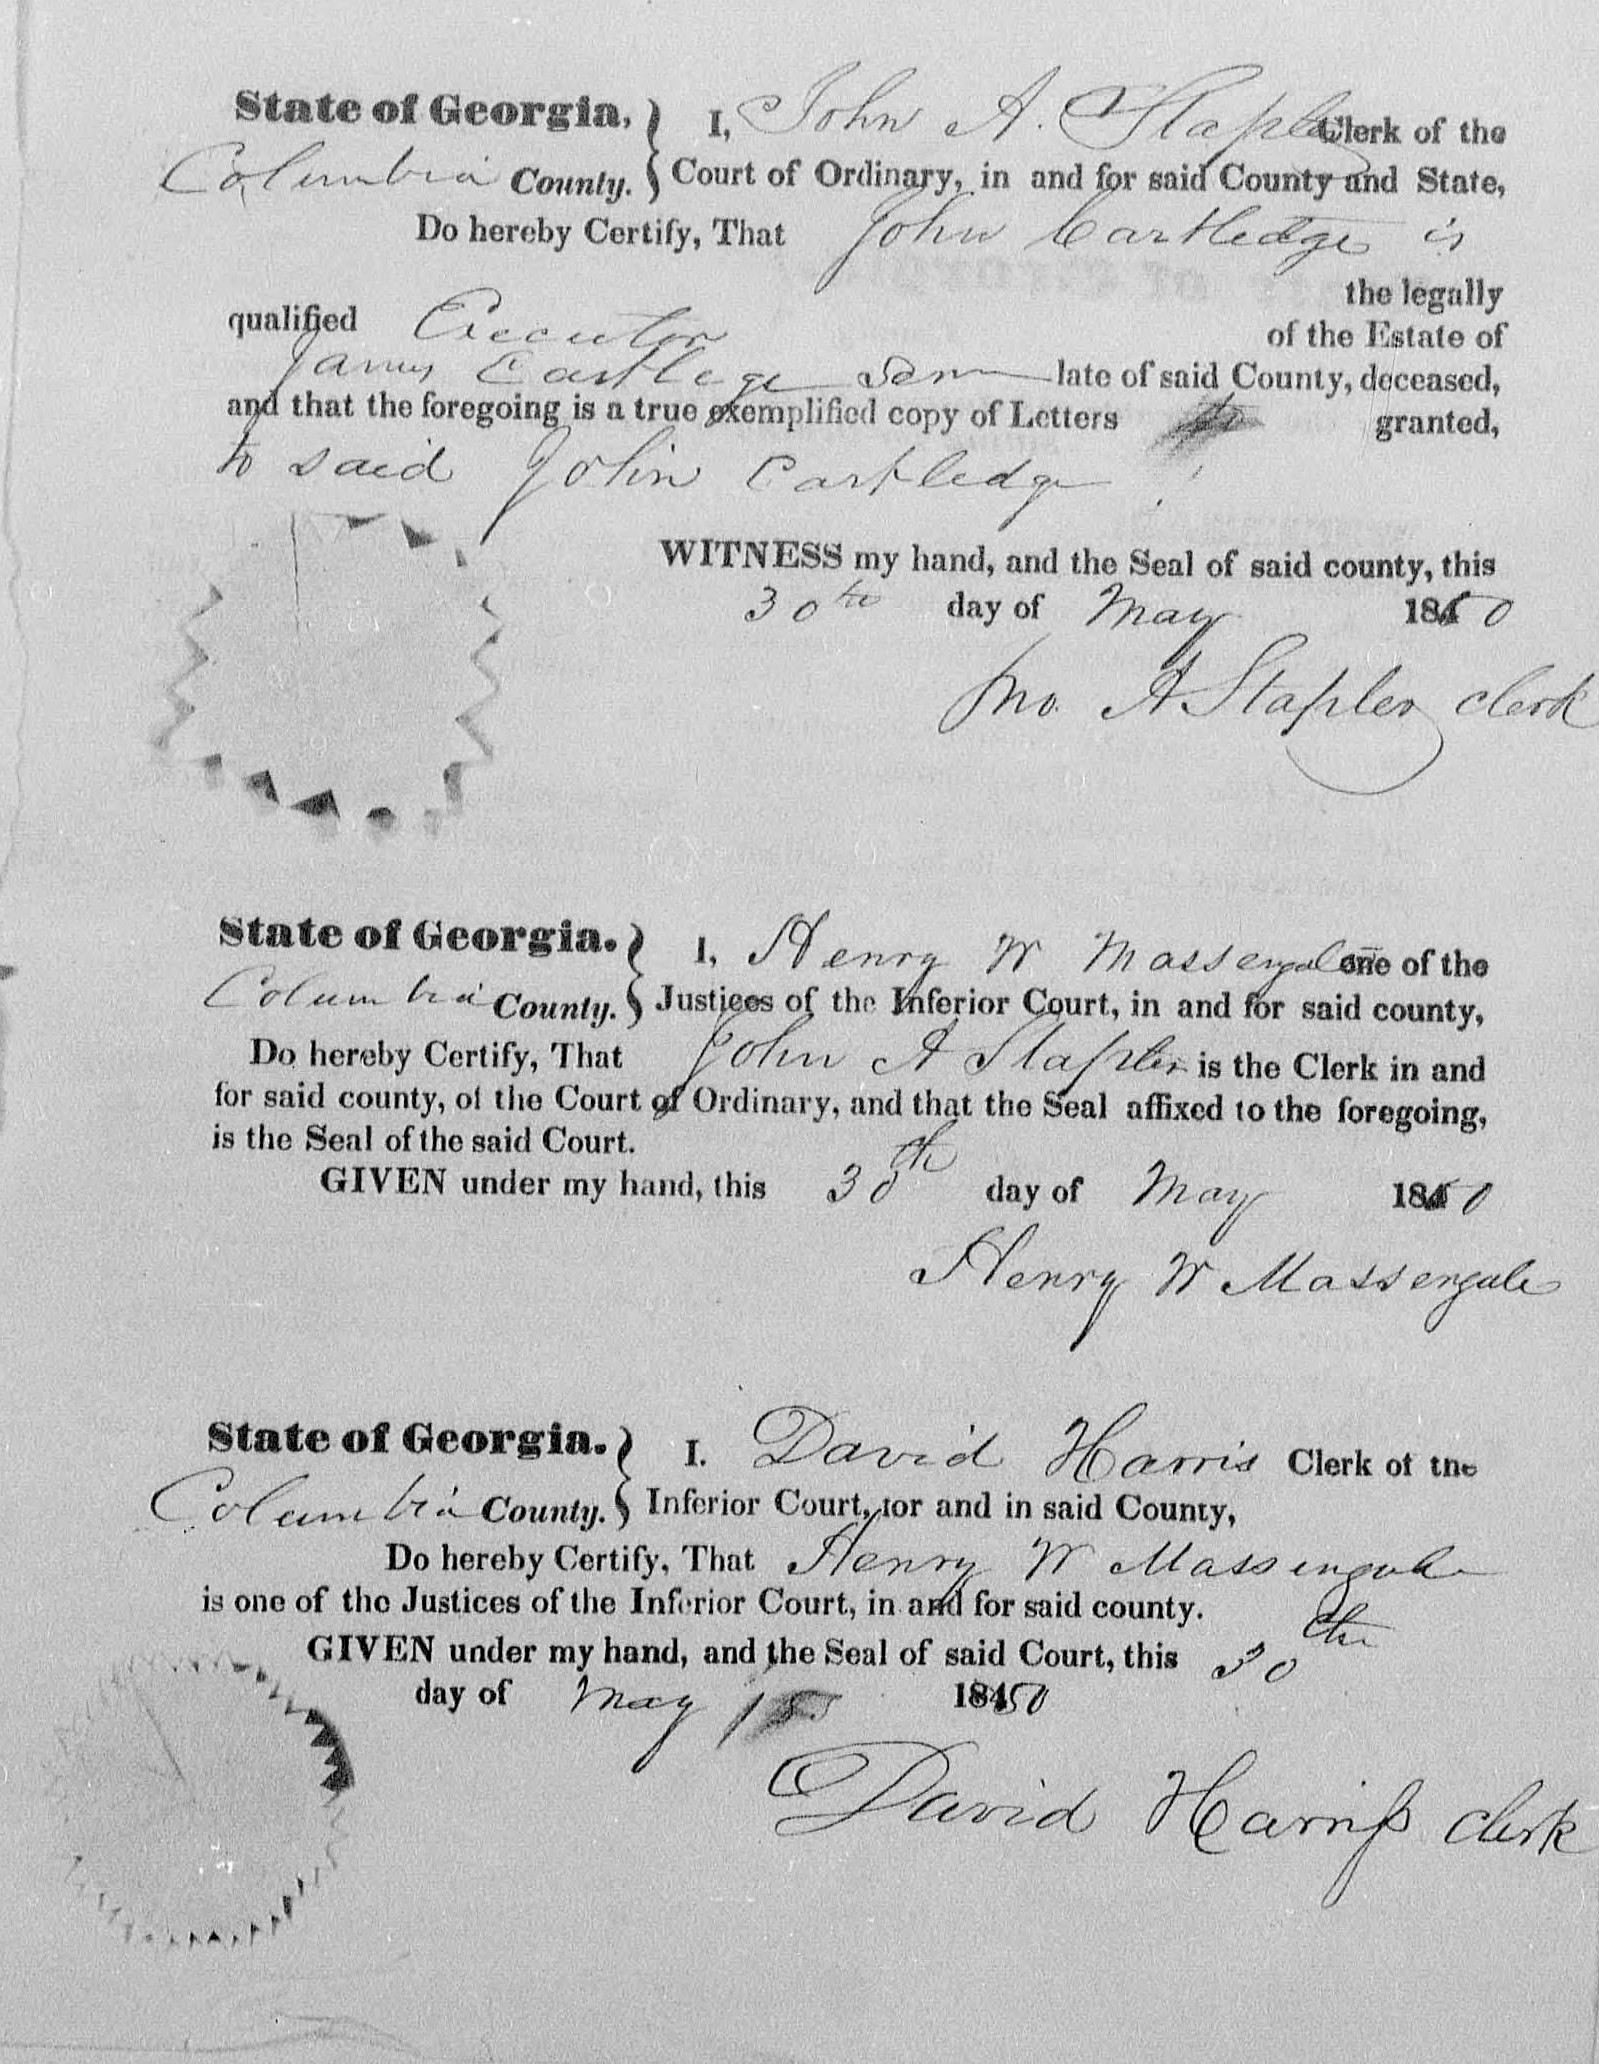 State of Georgia, } I, John A. Stapler Clerk of the
Columbia County. } Court of Ordinary, in and for said County and State,
Do hereby Certify, That John Cartledge is
the legally
qualified Executor of the Estate of
James Cartlege Senr late of said County, deceased,
and that the foregoing is a true exemplified copy of Letters granted,
to said John Cartledge
WITNESS my hand, and the Seal of said county, this
30th day of May 1850
Jno. A Stapler clerk
State of Georgia. } I, Henry W Massengale one of the
Columbia County. } Justices of the Inferior Court, in and for said county,
Do hereby Certify, That John A Stapler is the Clerk in and
for said county, of the Court of Ordinary, and that the Seal affixed to the foregoing,
is the Seal of the said Court.
GIVEN under my hand, this 30th day of May 1850
Henry W Massengale
State of Georgia. } I. David Harris Clerk of the
Columbia County. } Inferior Court, for and in said County,
Do hereby Certify, That Henry W Massengale
is one of the Justices of the Inferior Court, in and for said county.
GIVEN under my hand, and the Seal of said Court, this 30th
day of May 18450
David Harris clerk